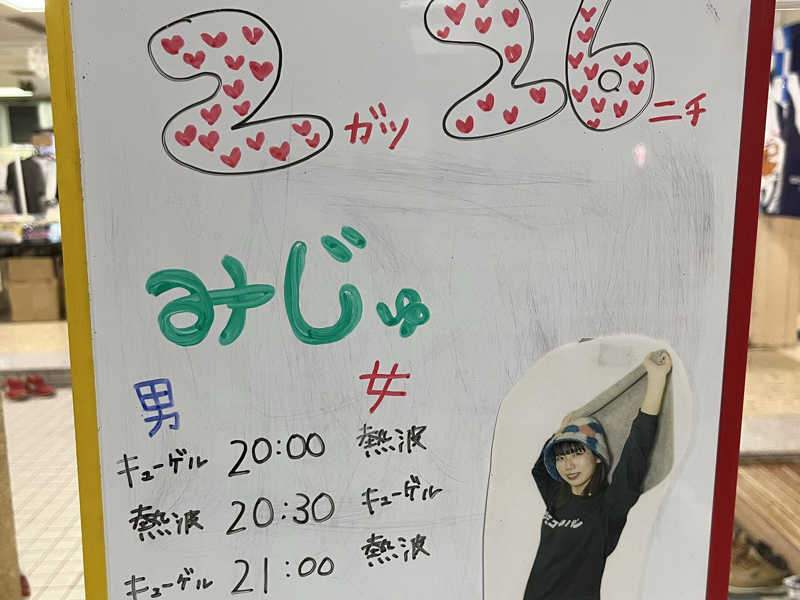 2ガツ26ニチ
みじゅ
男 女
キューゲル 20:00 熱波
熱波 20:30 キューゲル
キューゲル 21:00 熱波